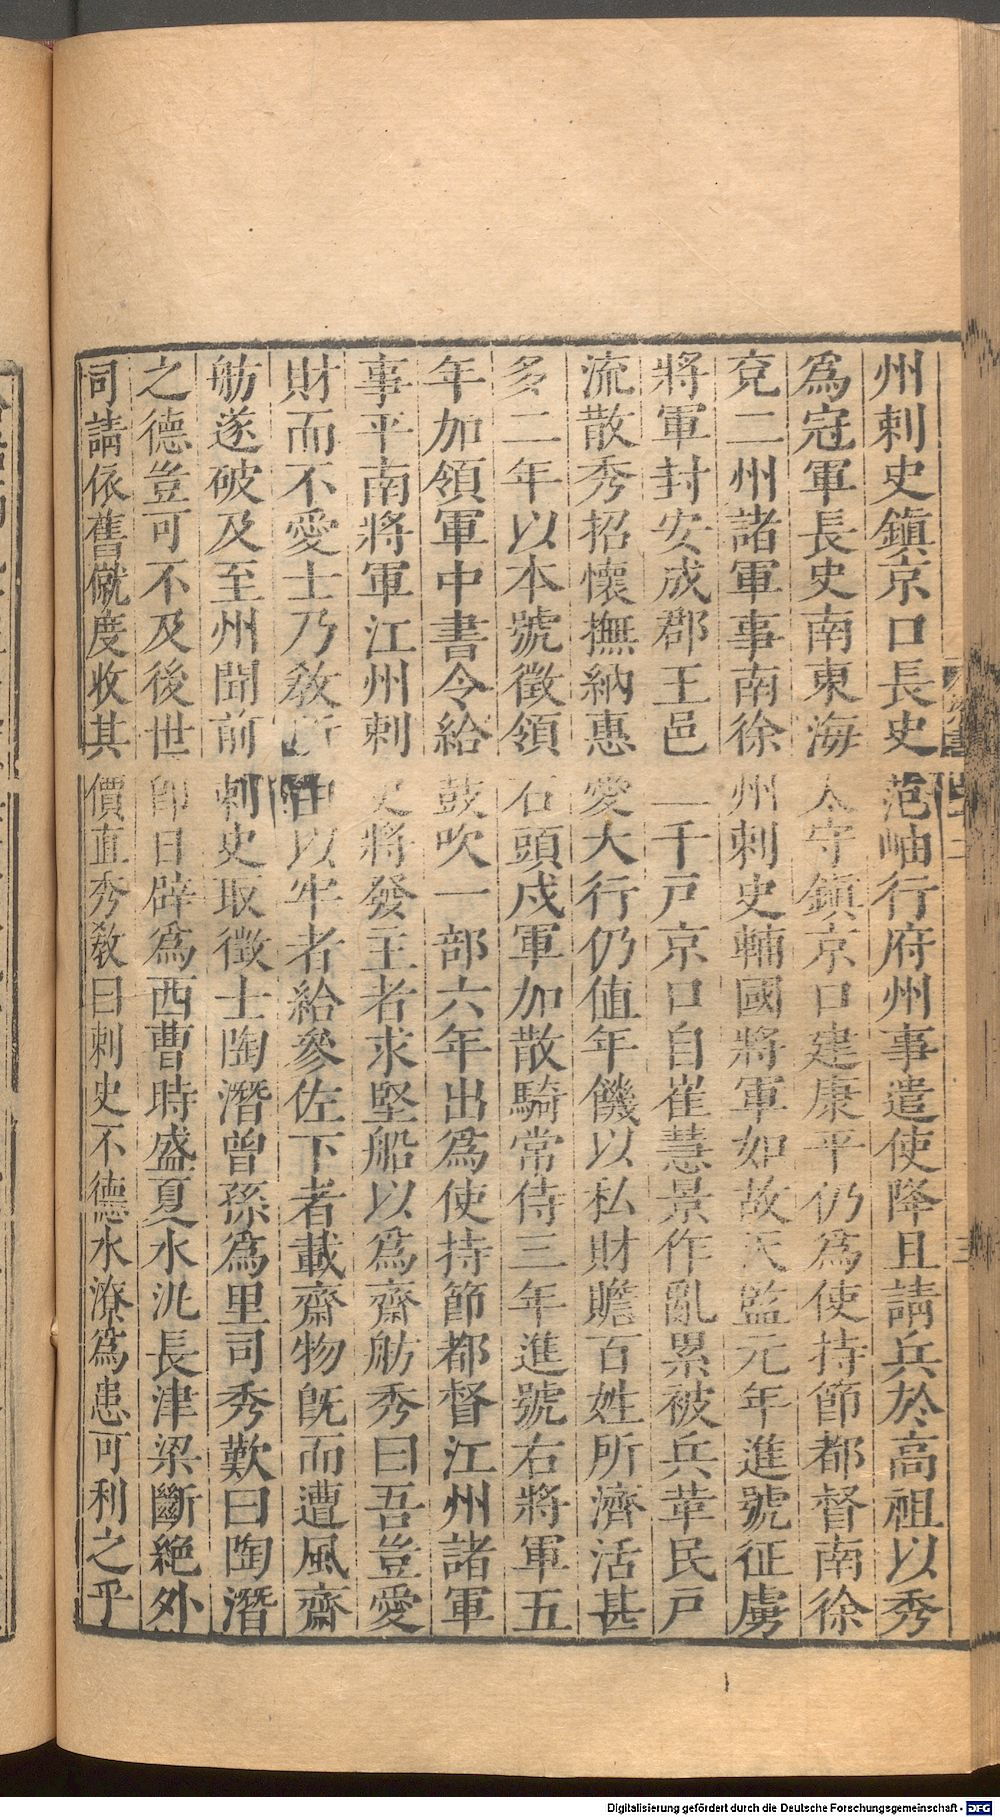 州刺史鎮京口長史范岫行府州事遣使降且請兵於高祖以秀
爲冠軍長史南東海太守鎮京口建康平仍爲使持節都督南徐
兗二州諸軍事南徐州刺史輔國將軍如故天監元年進號征虜
將軍封安成郡王邑二千戸京口自崔慧景作亂累被兵革民戸
流散秀招懷撫納惠愛大行仍値年饑以私財贍百姓所濟活甚
多二年以本號徵領石頭戍軍加散騎常侍三年進號右將軍五
年加領軍中書令給鼓吹一部六年出爲使持節都督江州諸軍
事平南將軍江州刺史將發主者求堅船以爲齋舫秀曰吾豈愛
財而不愛士乃敎所由以牢者給參佐下者載齋物旣而遭風齋
舫遂破及至州聞前刺史取徵士陶潛曾孫爲里司秀歎曰陶潛
之德豈可不及後世卽日辟爲西曹時盛夏水汎長津梁斷絶外
司請依舊僦度收其價直秀敎曰刺史不德水潦爲患可利之乎
Digitalisierung gefördert durch die Deutsche Forschungsgemeinschaft - DFG